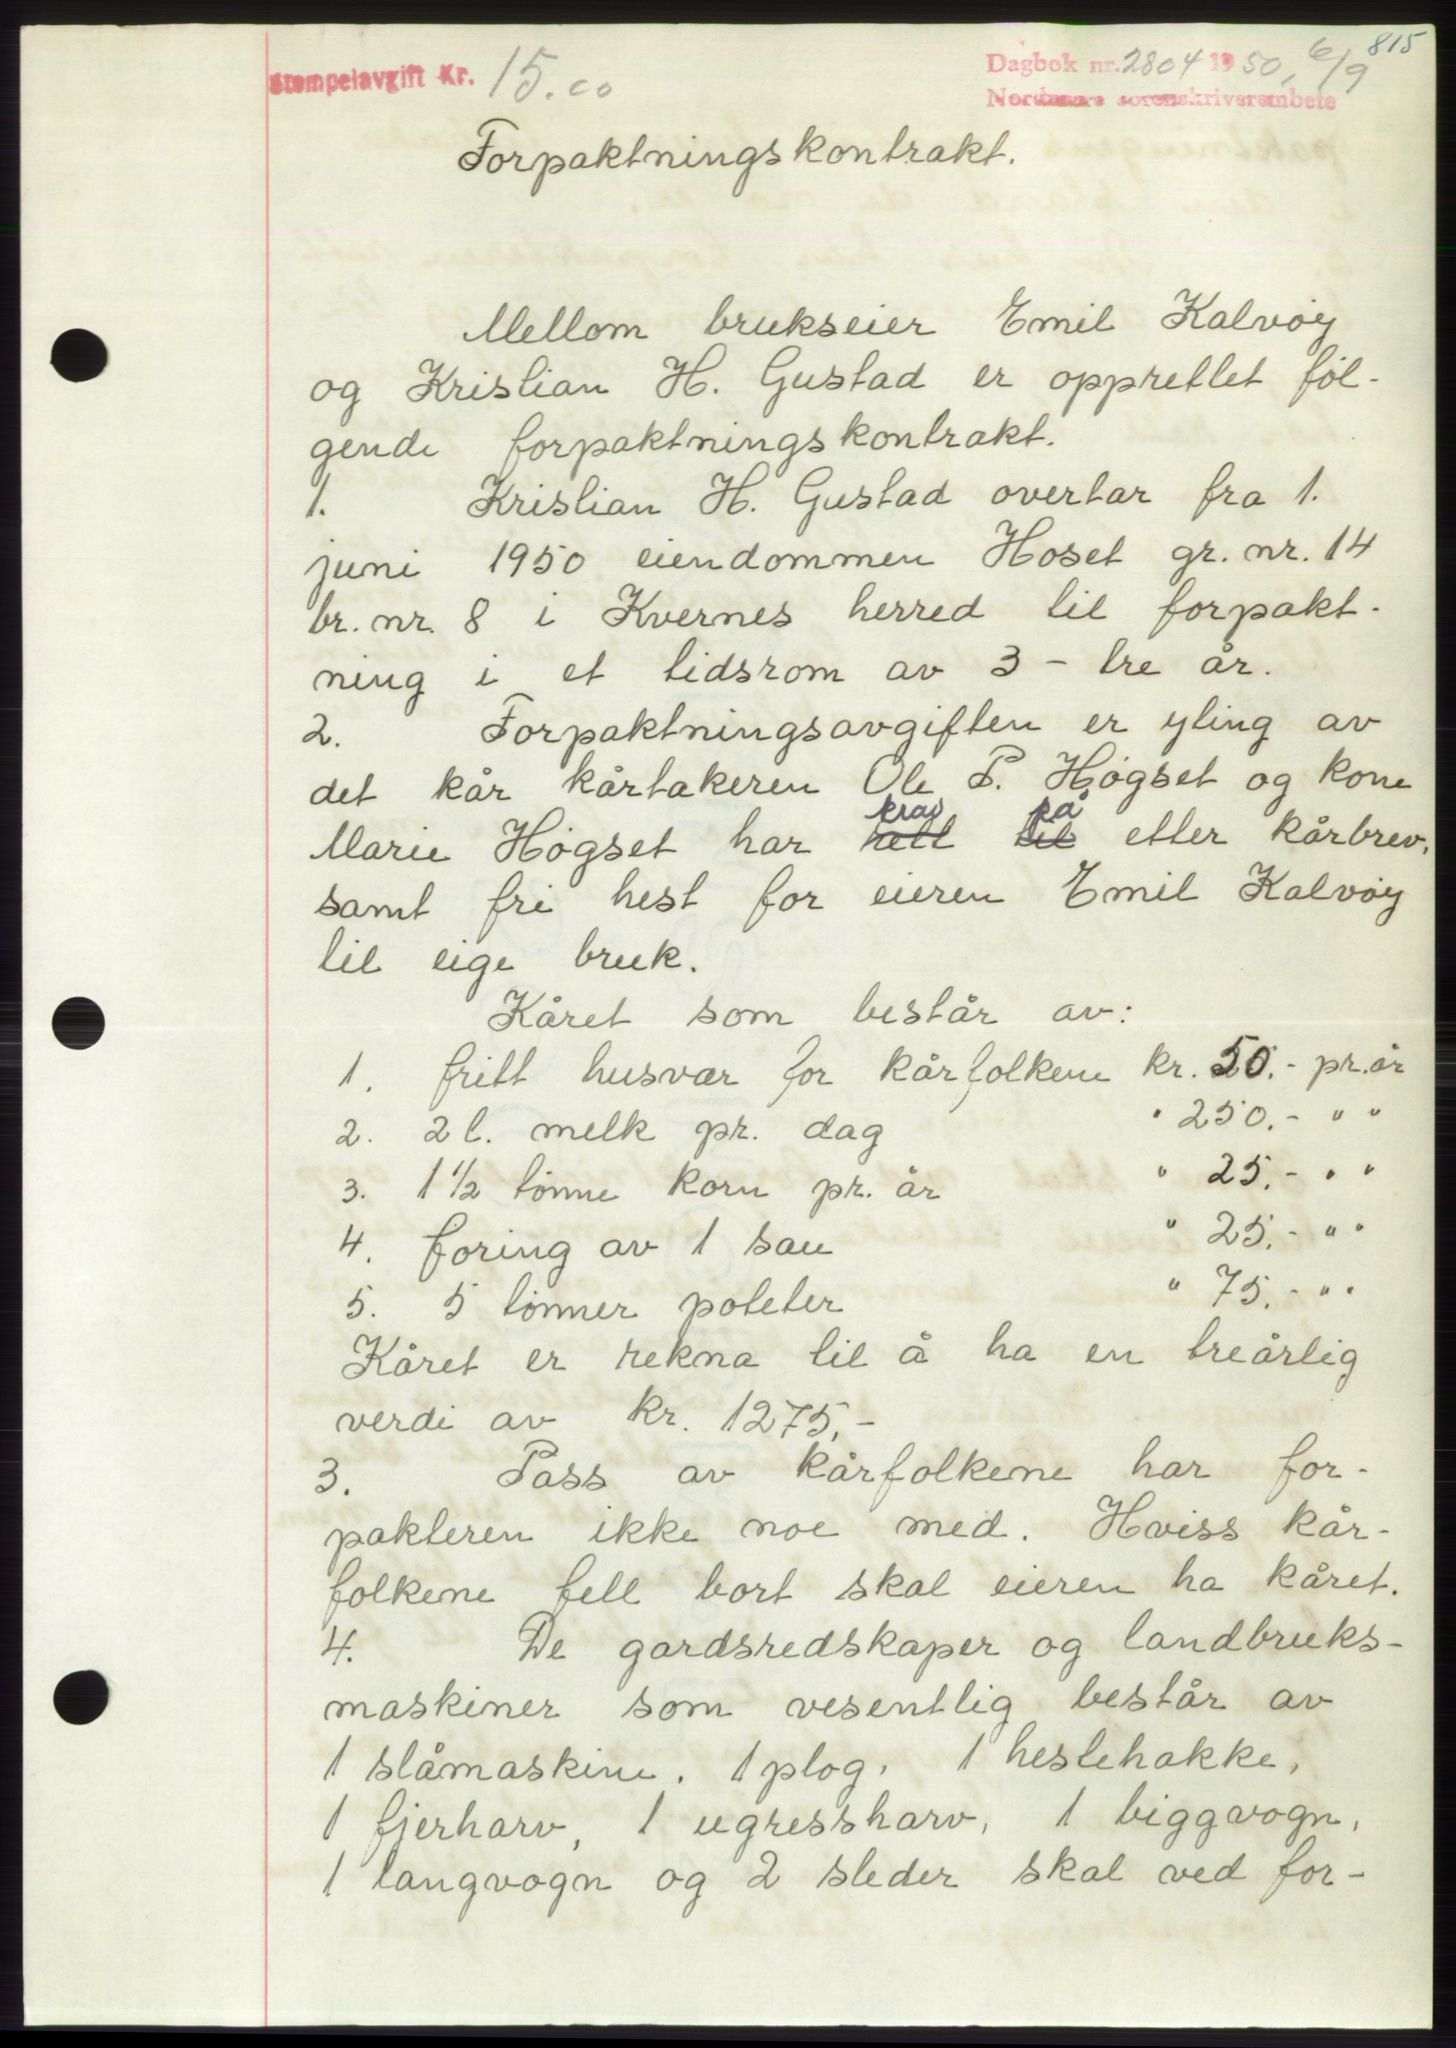 815
Stempelavgift Kr. 15.00
Dagbok nr. 2804 1950, 6/9
Nordmøre sorenskriverembete
Forpaktningskontrakt.
Mellom brukseier Emil Kalvøy
og Kristian H. Gustad er opprettet føl-
gende forpaktningskontrakt.
1. Kristian H. Gustad overtar fra 1.
juni 1950 eiendommen Hoset gr. nr. 14
br. nr. 8 i Kvernes herred til forpakt-
ning i et tidsrom av 3 - tre år.
2. Forpaktningsavgiften er yting av
det kår kårtakeren Ole P. Høgset og kone
krav på
Marie Høgset har rett til etter kårbrev,
samt fri hest for eieren Emil Kalvøy
til eige bruk.
Kåret som består av:
1. fritt husvær for kårfolkene kr. 50.- pr. år
2. 2 l. melk pr. dag " 250.- " "
3. 1 1/2 tønne korn pr. år " 25.- " "
4. foring av 1 sau " 25.- " "
5. 5 tønner poteter " 75.- " "
Kåret er rekna til å ha en treårlig
verdi av kr. 1275,-
3. Pass av kårfolkene har for-
pakteren ikke noe med. Hviss kår-
folkene fell bort skal eieren ha kåret.
4. De gardsredskaper og landbruks-
maskiner som vesentlig består av
1 slåmaskine, 1 plog, 1 hestehakke,
1 fjerharv, 1 ugressharv, 1 biggvogn,
1 langvogn og 2 sleder skal ved for-